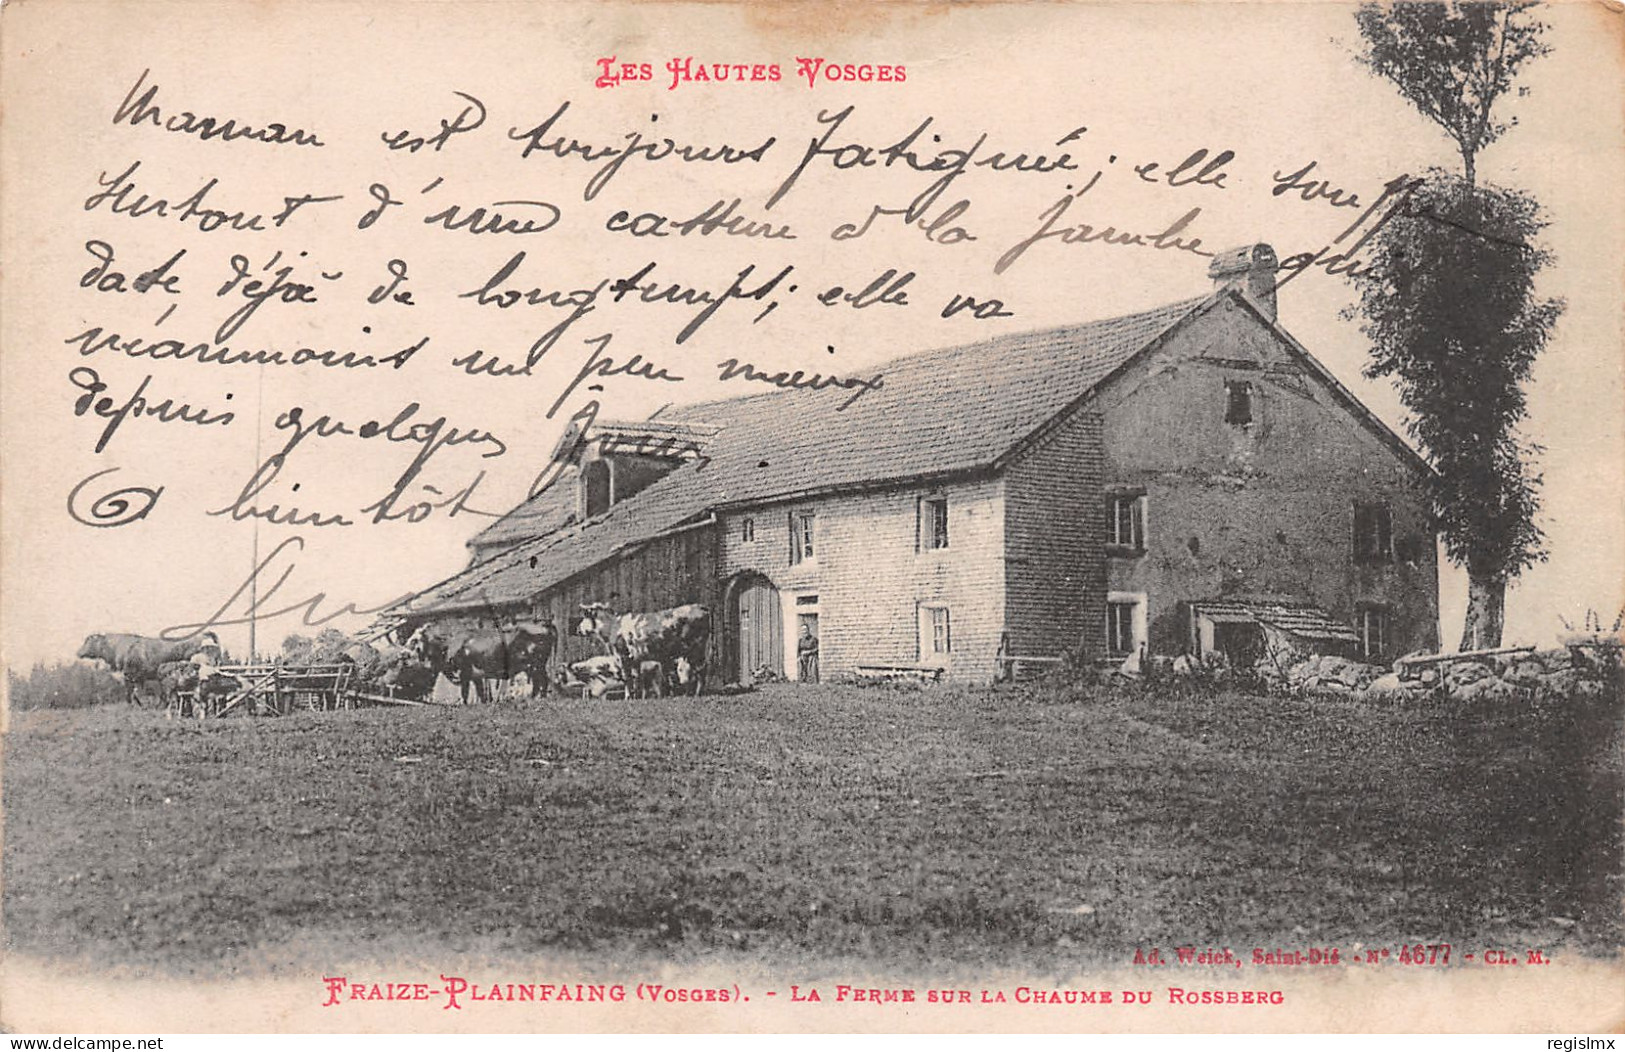 LES HAUTES VOSGES
Maman est toujours fatiguée; elle souffre
surtout d'une c à la jambe qui
date déjà de longtemps; elle va
néanmoins un peu mieux
depuis quelques jours
à bientôt
Ad. Weick, Saint-Dié - N° 4677 - CL. M.
FRAIZE-PLAINFAING (VOSGES). - LA FERME SUR LA CHAUME DU ROSSBERG
www.delcampe.net
regislmx